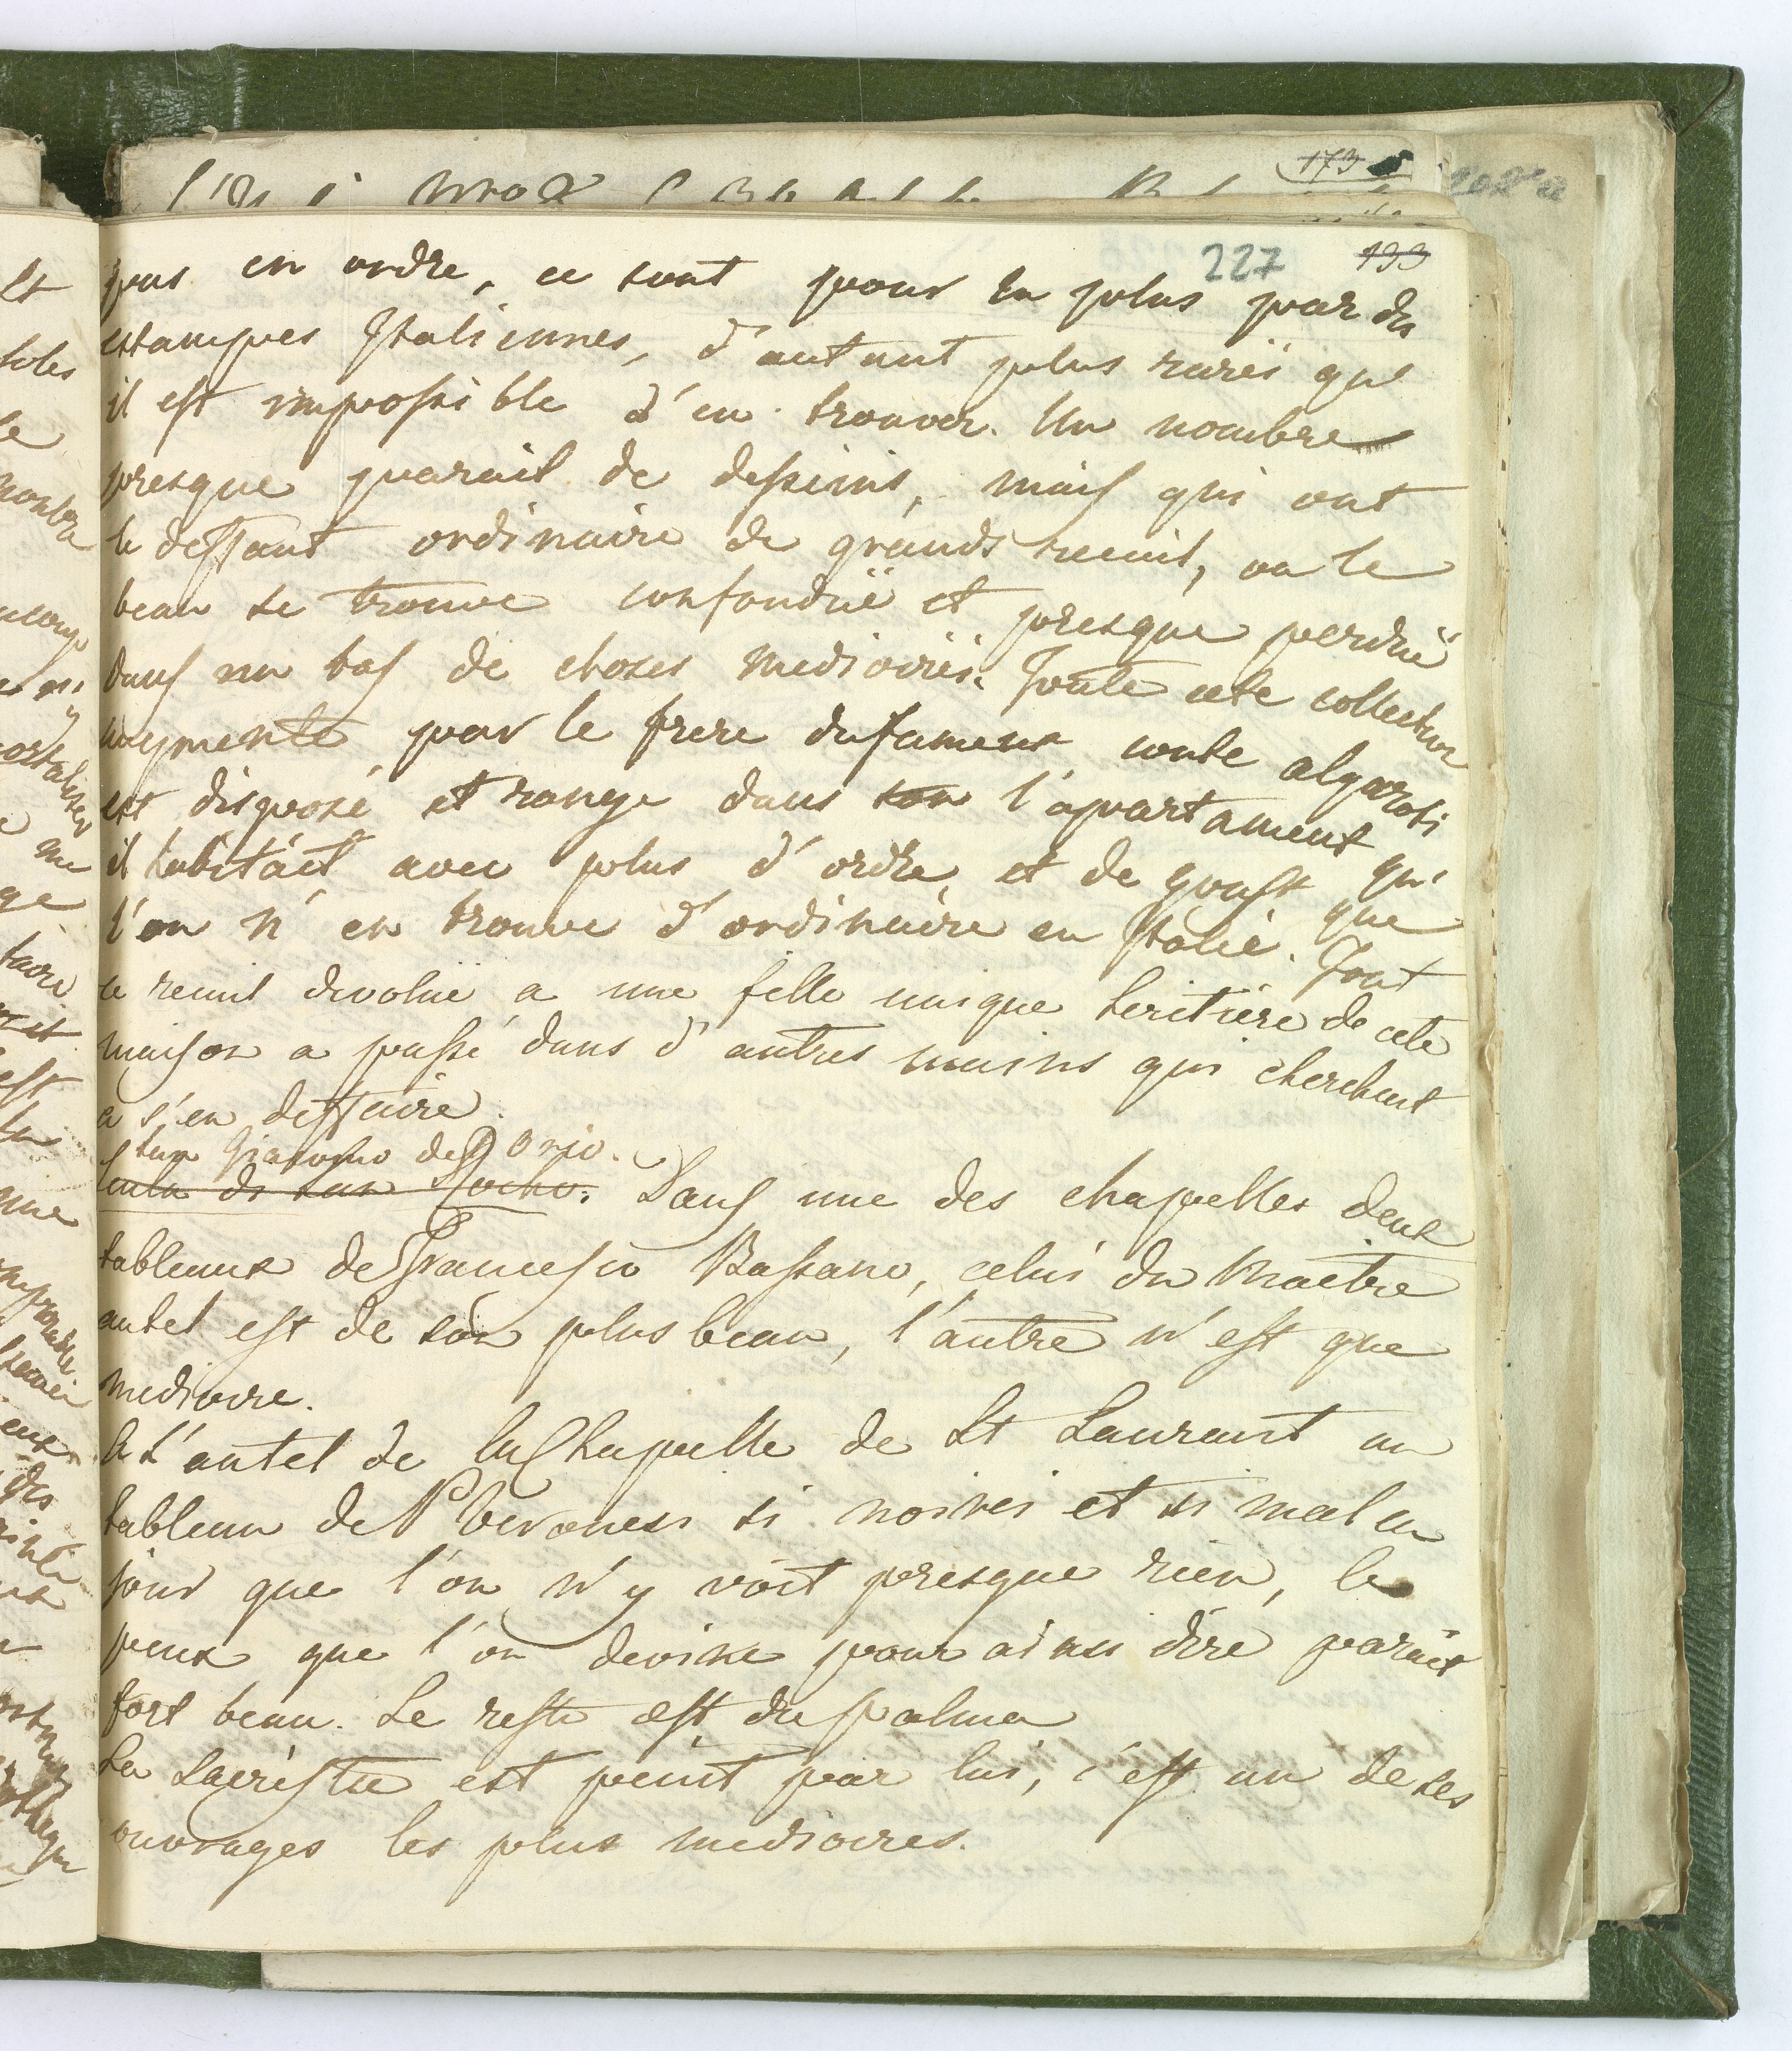 227 193
pas en ordre, ce sont pour la plus par des
estampes Italiennes, d'autant plus rares que
il est impossible d'en trouver. Un nombre
presque pareil de desseins, mais qui ont
le deffaut ordinaire de grands receuil, ou le
beau se trouve confondüe et presque perdüe
dans un tas de choses mediocres. Toute cete collection
augmente par le frere du fameux conte algaroti
est disposé et rangé dans son l'apartament qu'
il habitáit avec plus d'ordre et de goust que
l'on n'en trouve d'ordinaire en Italie. Tout
ce receuil devolüe a une fille unique heritiere de cete
maison a passé dans d'autres mains qui cherchent
a s'en deffaire.
San Giacomo de Orio.
Scula di San Rocho. Dans une des chapelles deux
tableaux de Francesco Bassano, celui du Maitre
autel est de son plus beau, l'autre n'est que
mediocre.
A l'autel de la Chapelle de St Laurant un
tableau de P Veronese si noirci et si mal en
jour que l'on n'y voit presque rien, le
peux que l'on devine pour ainsi dire parait
fort beau. Le reste est du Palma
La Sacristie est peint par lui, c'est un de ses
ouvrages les plus mediocres.